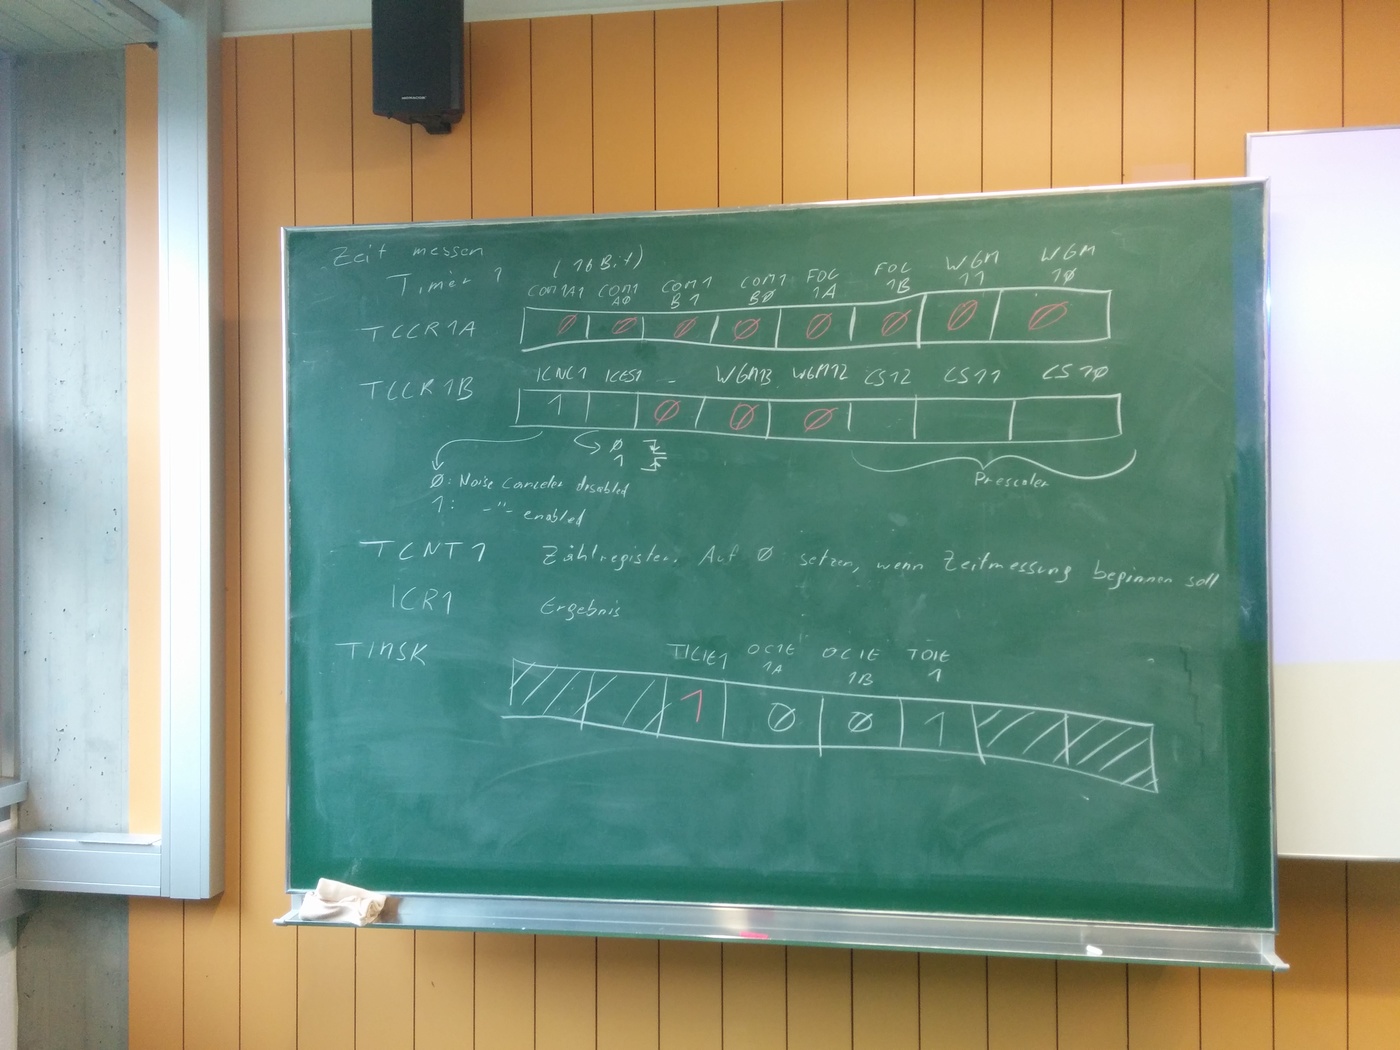 Zeit messen
Timer 1 (16 Bit)
COM1A1 COM1A0 COM1B1 COM1B0 FOC1A FOC1B WGM11 WGM10
TCCR1A 0 0 0 0 0 0 0 0
ICNC1 ICES1 - WGM13 WGM12 CS12 CS11 CS10
TCCR1B 1 0 0 0
0
1
Prescaler
0: Noise Canceler disabled
1: -"- enabled
TCNT1 Zählregister. Auf 0 setzen, wenn Zeitmessung beginnen soll
ICR1 Ergebnis
TIMSK
TICIE1 OCIE1A OCIE1B TOIE1
1 0 0 1